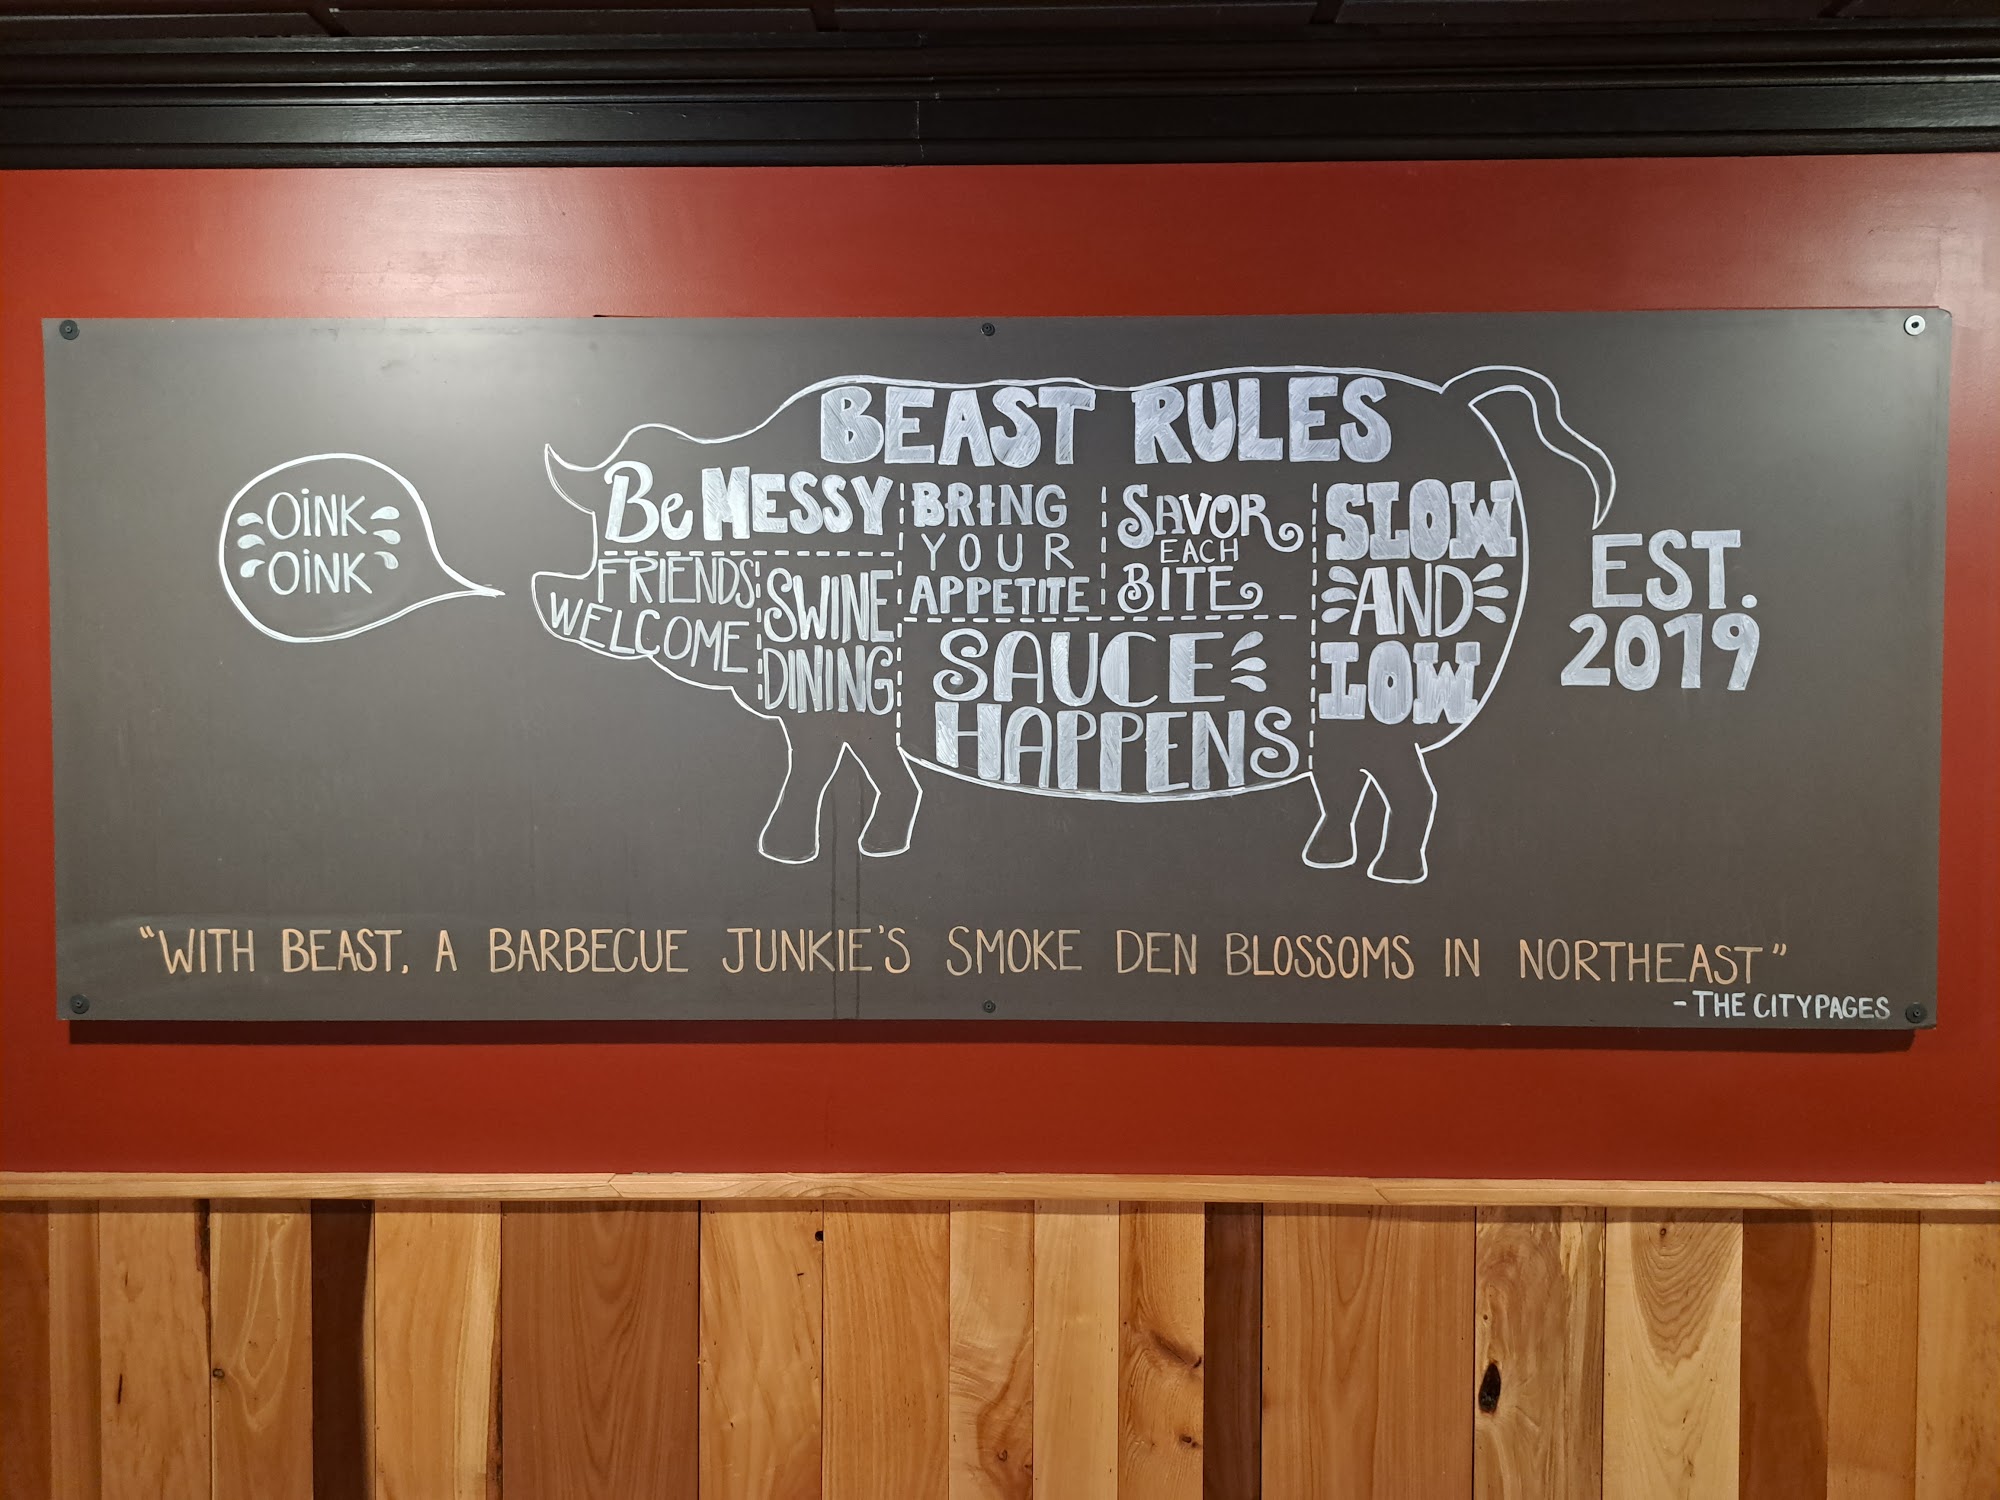 OINK
OINK
BEAST RULES
Be MESSY
FRIENDS
WELCOME
SWINE
DINING
BRING
YOUR
APPETITE
SAVOR
EACH
BITE
SAUCE
HAPPENS
SLOW
AND
LOW
EST.
2019
"WITH BEAST, A BARBECUE JUNKIE'S SMOKE DEN BLOSSOMS IN NORTHEAST"
- THE CITYPAGES